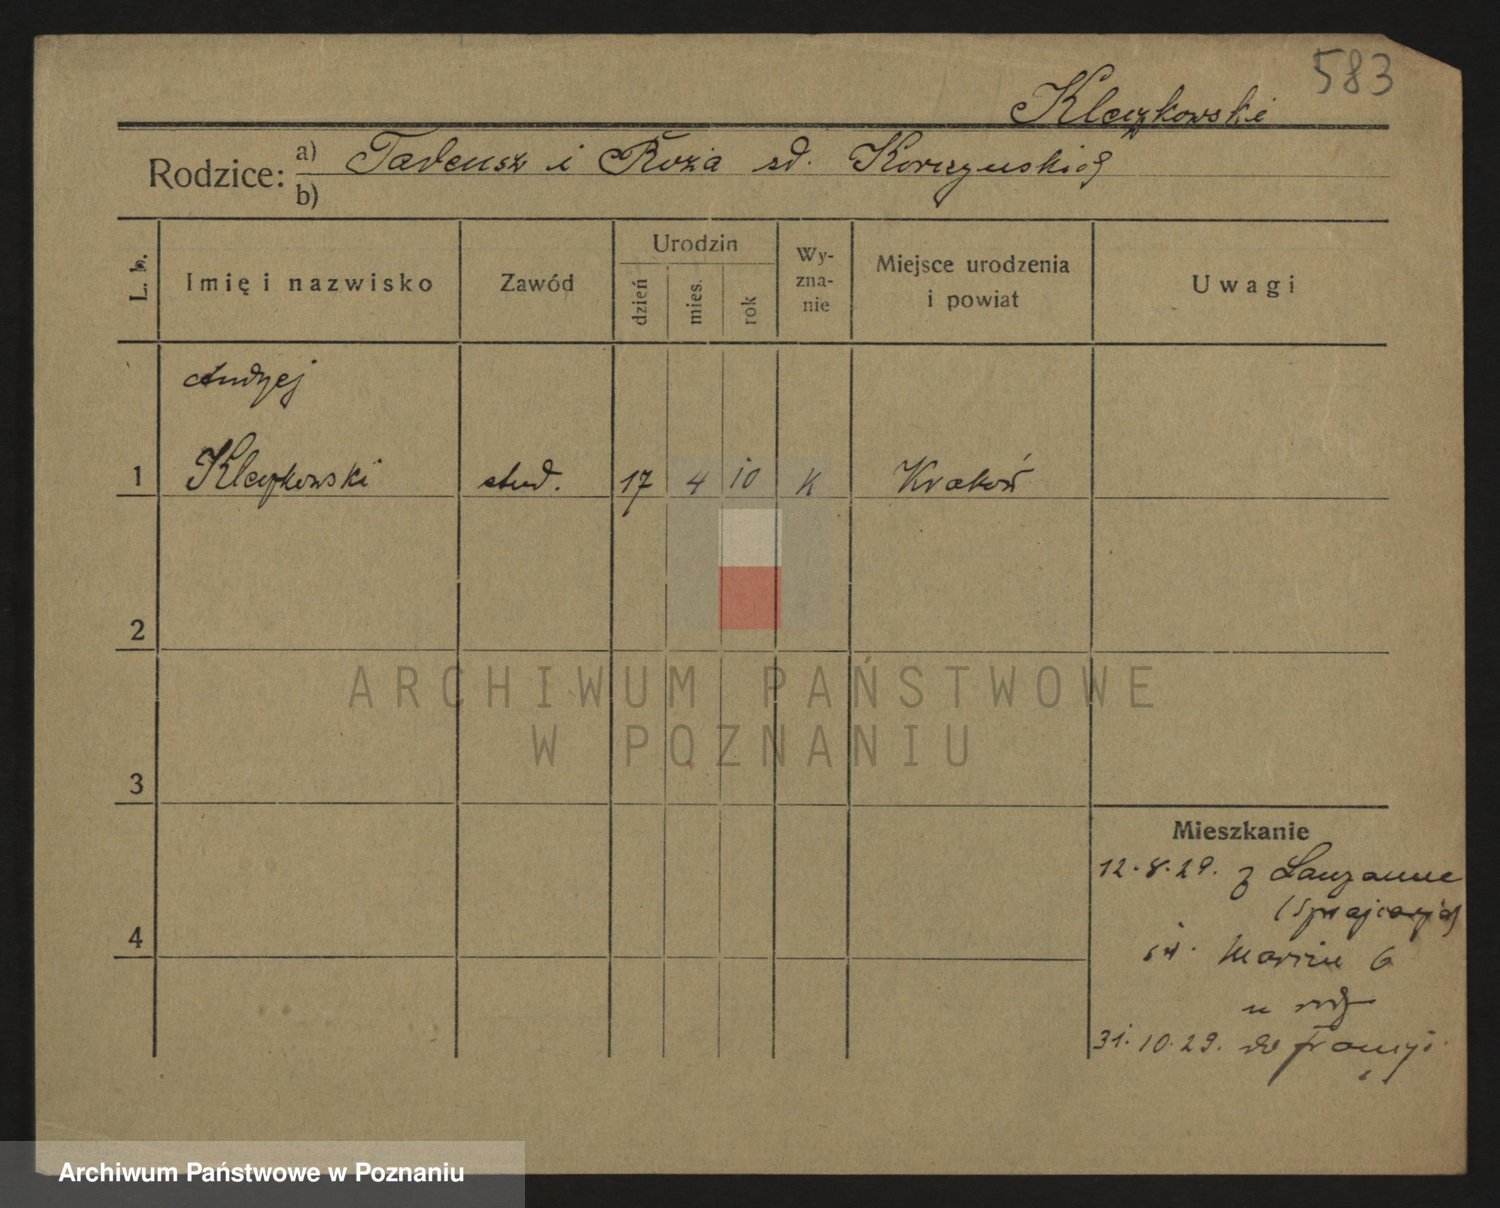 583
Kleczkowski
Rodzice: a) Tadeusz i Róża zd. Korczyńskich
b)
L. b.
Imię i nazwisko
Zawód
Urodzin
dzień
mies.
rok
Wy-
zna-
nie
Miejsce urodzenia
i powiat
Uwagi
Andrzej
1 Kleczkowski stud. 17 4 10 K Kraków
2
3
4
Mieszkanie
12.8.29. z Lauzanne
(Szwajcarja)
św. Marcin 6
u rodz
31.10.29. do Francji
ARCHIWUM PAŃSTWOWE
W POZNANIU
Archiwum Państwowe w Poznaniu